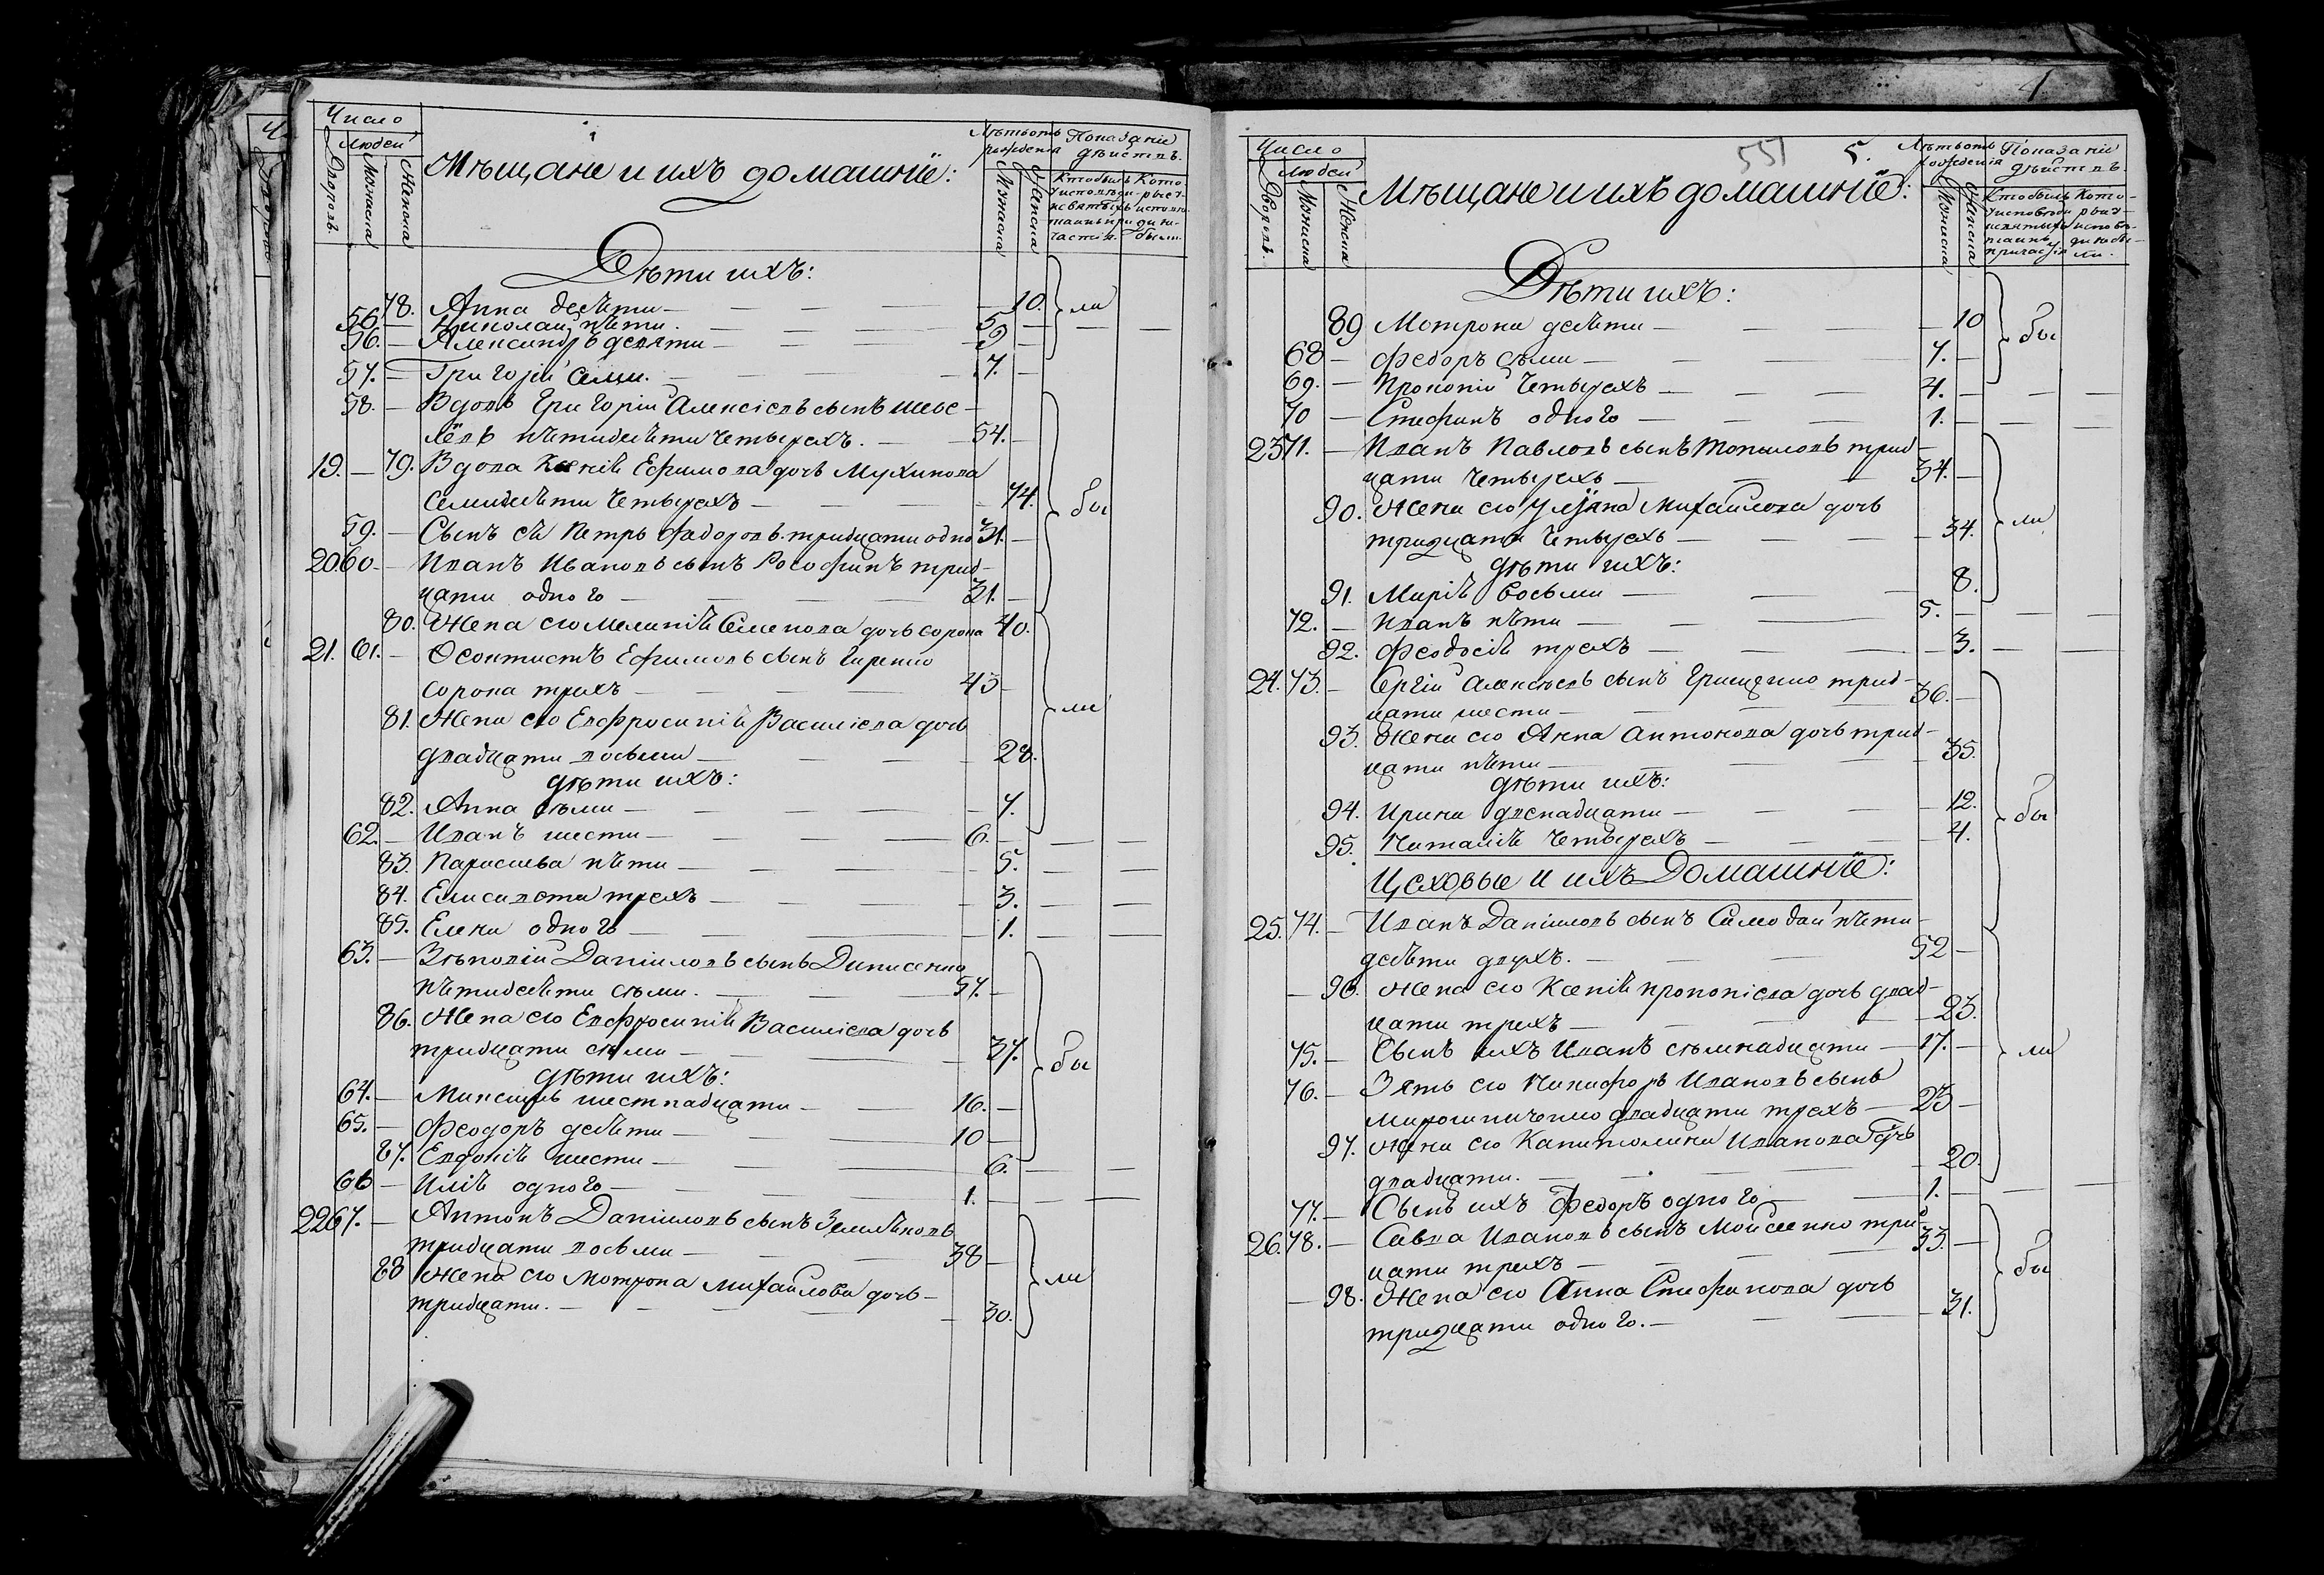 Число
Людей
Дворовъ.
Мужеска
Женска
Мѣщане и ихъ домашніе:
Лѣтъ отъ рожденія
Мужеска
Женска
Показаніе дѣйствъ.
Дѣти ихъ:
78. Анна десѣти — 10. ли
56. — Николай пѣти. 5 —
56. — Александръ девяти — 9 —
57. — Григорій семи. — 7. —
58. — Вдовъ Григорій Алексіевъ сынъ Шевс-
лёвъ пѣтидесѣти четырехъ. — 54. —
19. — 79. Вдова Ксенія Ефимова дочь Мухинова
семидесѣти четырехъ — 74. бы
59. — Сынъ еѣ Петръ Федоровъ тридцати одно 31. —
20 60 — Иванъ Ивановъ сынъ Рософинъ трид-
цати одного — 31. —
80. Жена его Меланіѣ Семенова дочь сорока 40.
21. 61. — Ѳеоктистъ Ефимовъ сынъ Гиренко
сорока трехъ — 43 —
81. Жена его Евфросиніѣ Василіева дочь ли
двадцати восьми — 28.
дѣти ихъ:
82. Анна сѣми — 7.
62. — Иванъ шести — 6. —
83. Параскева пѣти — 5. —
84. Елисавета трехъ — 3. —
85. Елена одного — 1. —
63. — Зѣновій Даніиловъ сынъ Денисенко
пѣтидесѣти сѣми. — 57. —
86. Жена его Евфросиніѣ Василіева дочь
тридцати сѣми — 37. бы
дѣти ихъ:
64. — Максимъ шестнадцати — 16. —
65. — Феодоръ десѣти — 10 —
87. Евдокіѣ шести — 6. —
66 — Иліѣ одного — 1. —
22 67. — Антонъ Даніиловъ сынъ Земляковъ
тридцати восьми — 38 —
88 Жена его Мотрона Михайлова дочь — ли
тридцати. — 30.
551 5.
Число
Людей
Дворовъ.
Мужеска
Женска
Мѣщане и ихъ домашніе:
Лѣтъ отъ рожденія
Мужеска
Женска
Показаніе дѣйствъ
Дѣти ихъ:
89 Мотрона десѣти — 10 бы
68 — Федоръ сѣми — 7. —
69. — Прокопій четырехъ — 4. —
70 — Стефанъ одного — 1. —
23 71. — Иванъ Павловъ сынъ Топиловъ трид-
цати четырехъ — 34. —
90. Жена его Уліяна Михайлова дочь ли
тридцати четырехъ — 34.
дѣти ихъ:
91. Маріѣ восьми — 8.
72. — Иванъ пѣти — 5. —
92. Феодосіѣ трехъ — 3. —
24. 73. — Сергій Алексѣевъ сынъ Грищенко трид-
цати шести — 36. —
93. Жена его Анна Антонова дочь трид-
цати пѣти — 35.
дѣти ихъ:
94. Ирина двенадцати — 12. бы
95. Наталіѣ четырехъ — 4.
Цеховые и ихъ Домашніе:
25. 74. — Иванъ Даніиловъ сынъ Самодай пѣти-
десѣти двухъ. — 52 —
— 96. Жена его Ксеніѣ Прокопіева дочь двад-
цати трехъ — 23.
75. — Сынъ ихъ Иванъ сѣмнадцати — 17. — ли
76. — Зять его Никифоръ Ивановъ сынъ
Мирошниченко двадцати трехъ — 23 —
97. Жена его Капитолина Иванова дочь
двадцати. — 20.
77. — Сынъ ихъ Федоръ одного — 1. —
26. 78. — Савва Ивановъ сынъ Мойсеенко трид
цати трехъ — 33. — бы
— 98. Жена его Анна Стефанова дочь
тридцати одного. — 31.